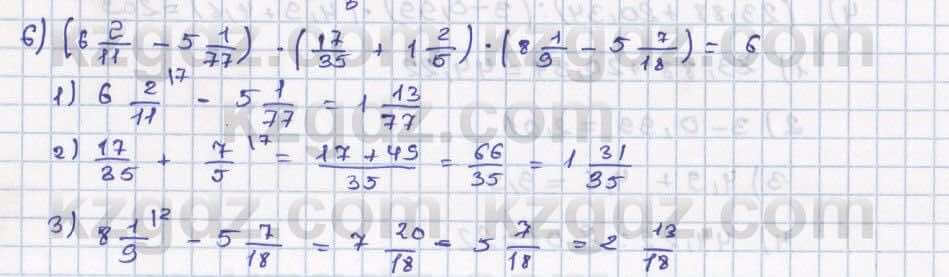 6) (6 2/11 - 5 1/77) · (17/35 + 1 2/5) · (8 1/9 - 5 7/18) = 6
1) 6 2/11 |7 - 5 1/77 = 1 13/77
2) 17/35 + 7/5 |7 = 17+49/35 = 66/35 = 1 31/35
3) 8 1/9 |2 - 5 7/18 = 7 20/18 = 5 7/18 = 2 13/18
kzgdz.com
kzgdz.com kzgdz.com